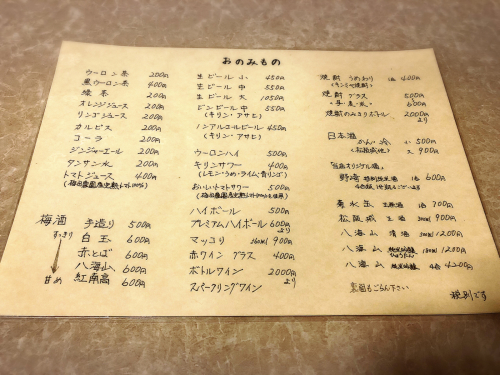 おのみもの
ウーロン茶 200円
黒ウーロン茶 400円
緑茶 200円
オレンジジュース 200円
リンゴジュース 200円
カルピス 200円
コーラ 200円
ジンジャーエール 200円
タンサン水 200円
トマトジュース 400円
梅酒
すっきり
甘め
手造り 500円
白玉 600円
赤とば 600円
八海山 600円
紅南高 600円
生ビール 小 450円
生ビール 中 550円
生ビール 大 1050円
ビンビール 中 550円
(キリン・アサヒ)
ノンアルコールビール 450円
(キリン・アサヒ)
ウーロンハイ 500円
キリンサワー 400円
(レモン・うめ・ライム・青リンゴ)
おいしいトマトサワー 500円
ハイボール 500円
プレミアムハイボール 600円より
マッコリ 360ml 900円
赤ワイン グラス 400円
ボトルワイン 2000円より
スパークリングワイン
焼酎 うめわり 1杯 400円
焼酎 グラス 500円
600円
焼酎のみきりボトル より
日本酒
かんい 冷 小 500円
大 900円
野崎 特別純米酒 1杯 600円
700円
松阪城 900円
八海山 清酒 300ml 1200円
八海山 純米吟醸 180ml 1200円
八海山 純米吟醸 4合 4200円
裏面もごらん下さい
税別です